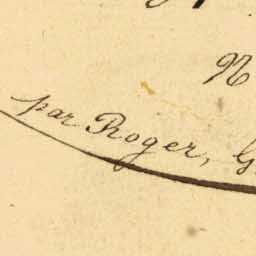 N
par Roger, G